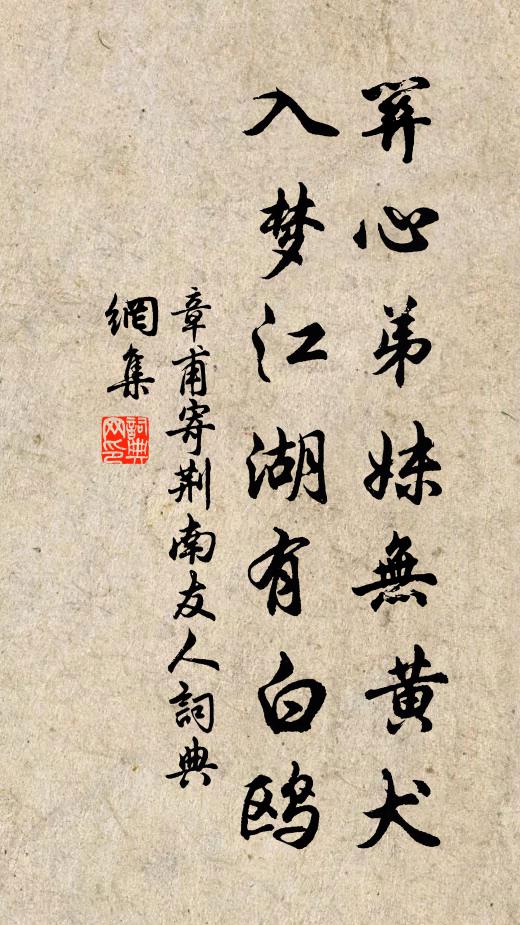 关心弟妹無黄犬
入梦江湖有白鸥
章甫寄荆南友人詞典
網集
詞典
网印